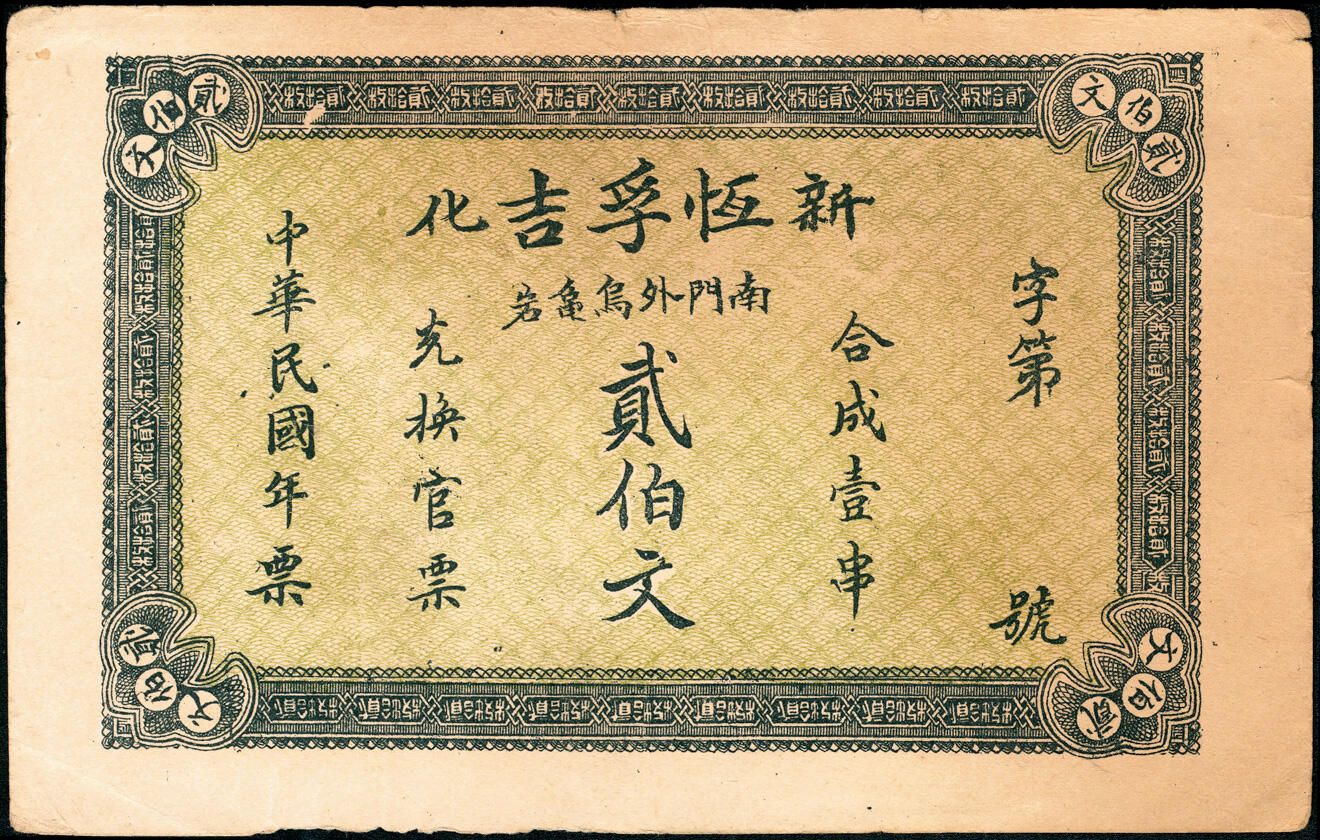 貳伯文
貳伯文
貳拾枚 貳拾枚 貳拾枚 貳拾枚 貳拾枚 貳拾枚 貳拾枚 貳拾枚 貳拾枚
新恆孚吉化
南門外烏亀岩
字第 號
合成壹串
貳伯文
兑換官票
中華民國年票
貳拾枚 貳拾枚 貳拾枚 貳拾枚
貳拾枚 貳拾枚 貳拾枚 貳拾枚
貳拾枚 貳拾枚 貳拾枚 貳拾枚 貳拾枚 貳拾枚 貳拾枚 貳拾枚 貳拾枚
貳伯文
貳伯文